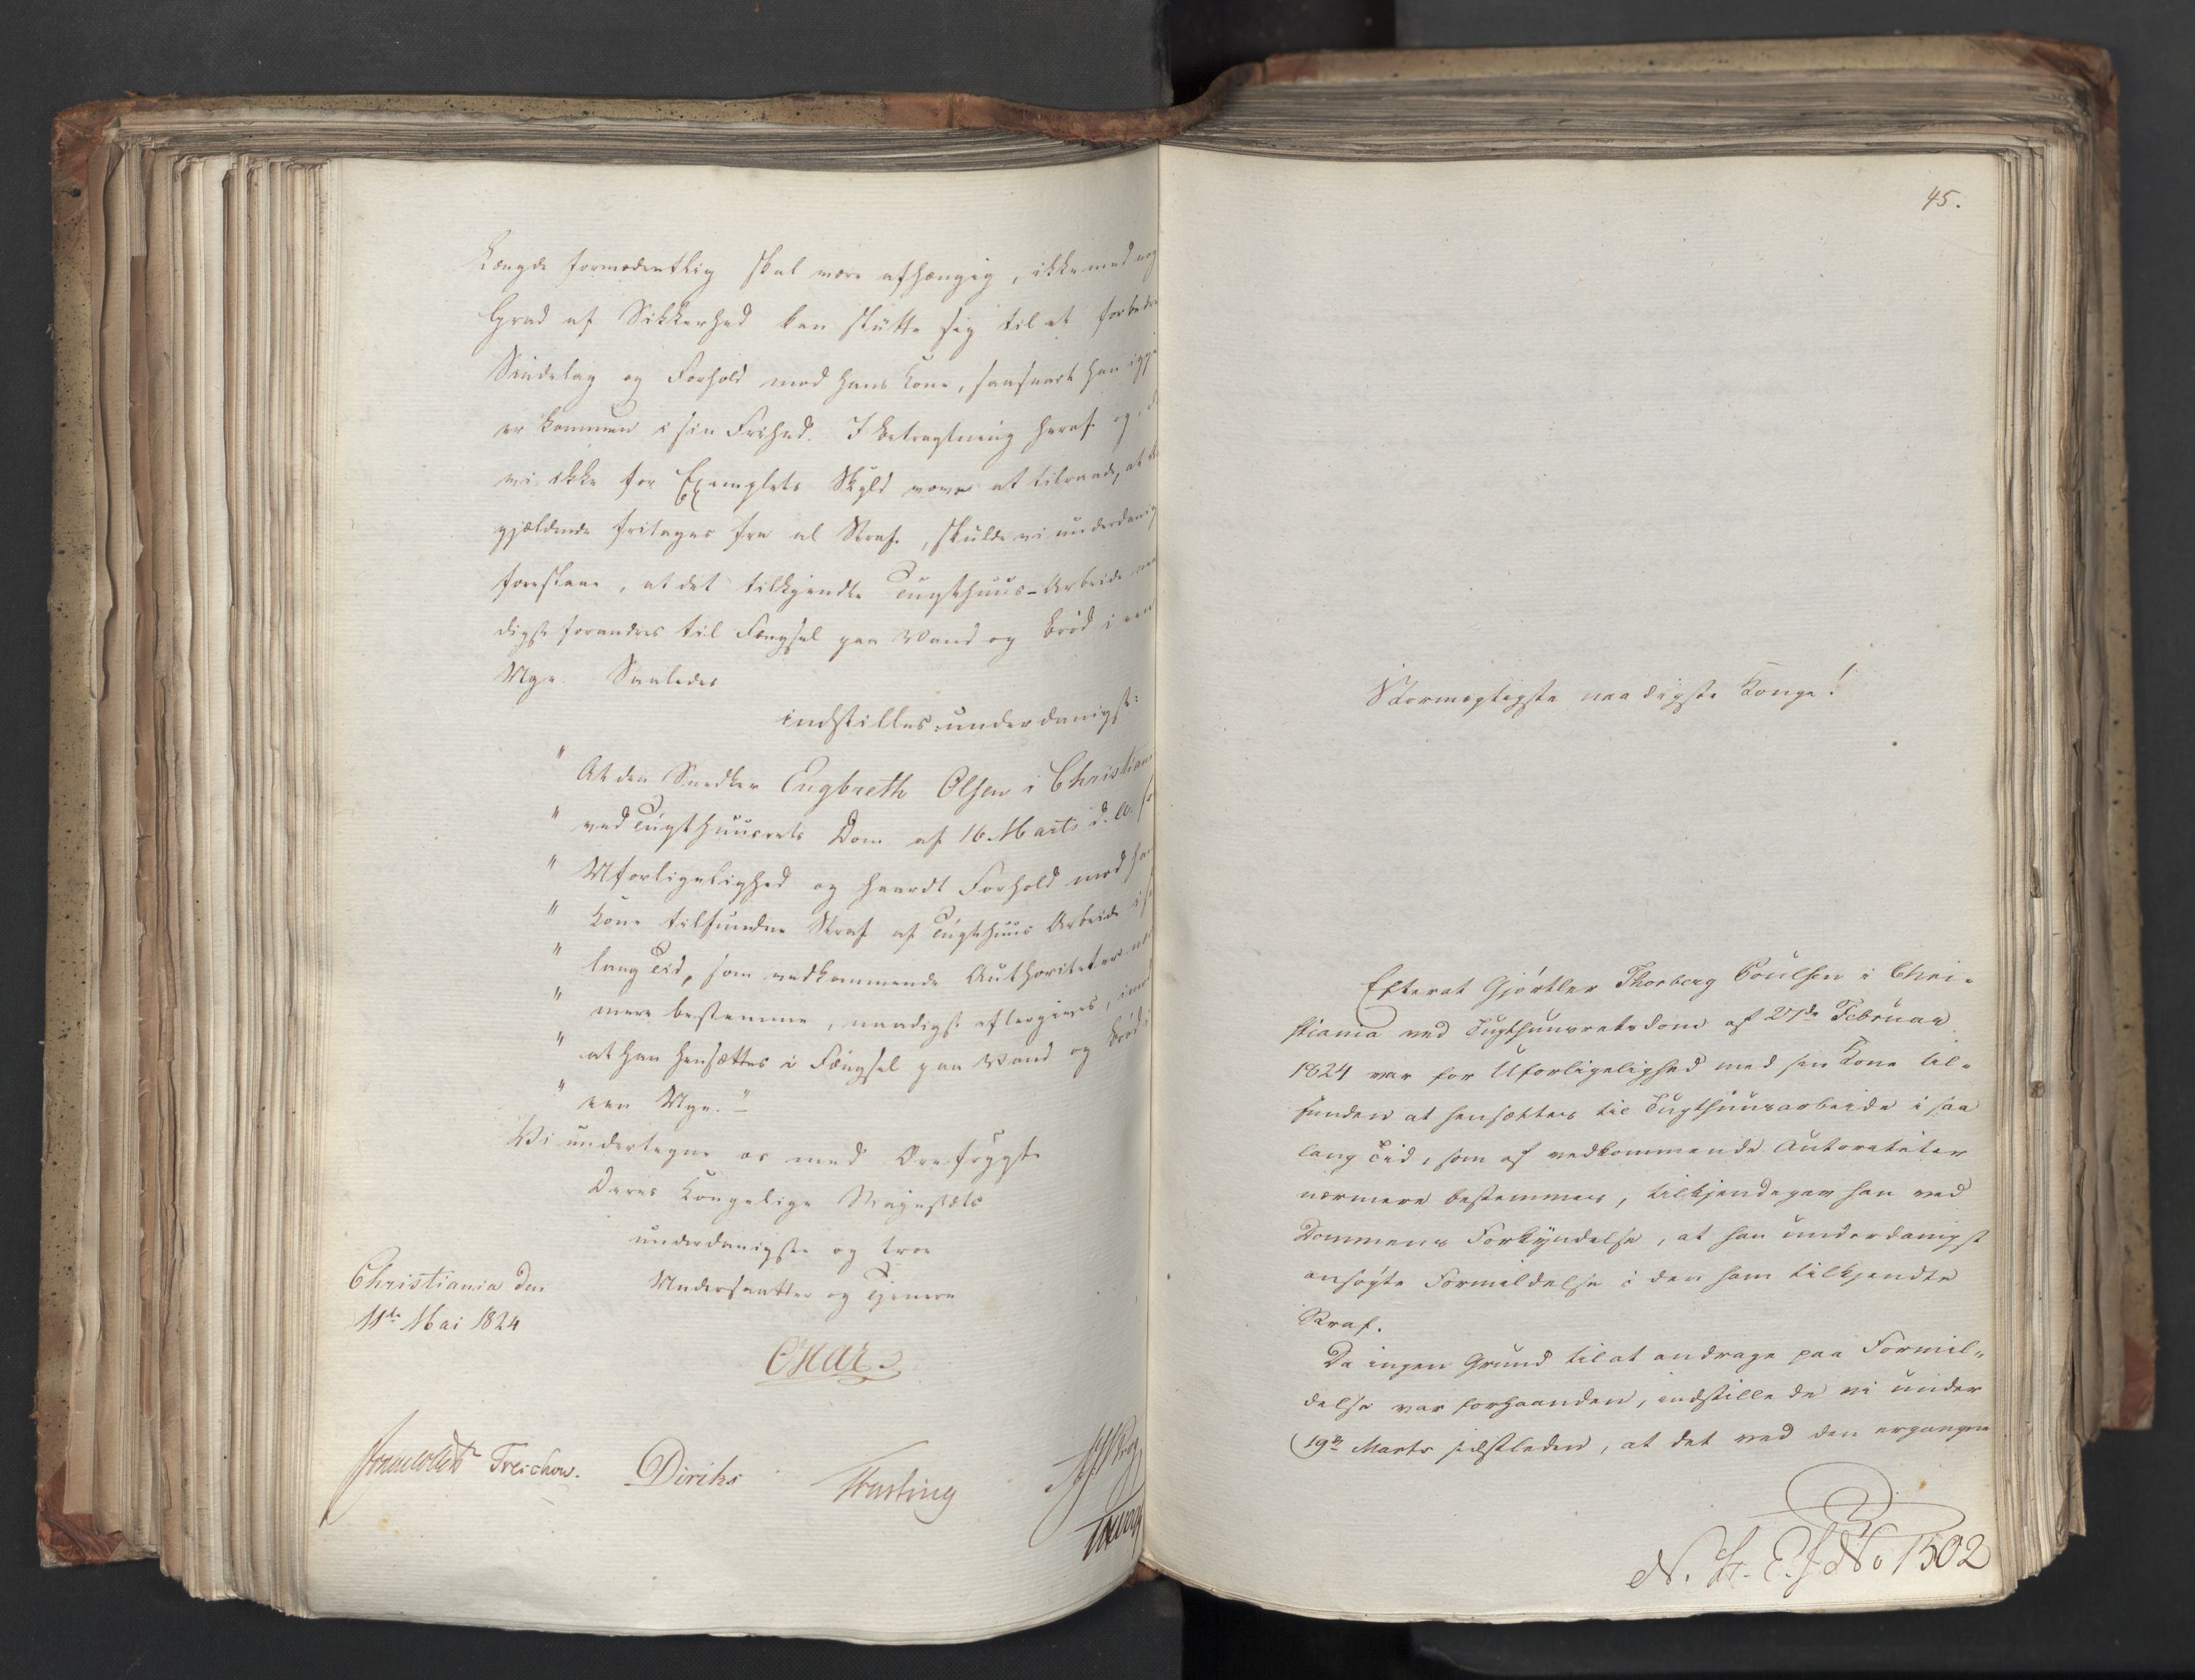 Længde formodentlig skal være afhængig, ikke med nog
Grad af Sikkerhed kan støtte sig til et forbedre
Sindelag og Forhold mod hans Kone, saasnart han igje
er kommen i sin Frihed. I Betragtning heraf og, d
vi ikke for Exemplets Skyld vove at tilraade, at
gjældende fritages fra al Straf, skulde vi underdanig
foreslaae, at det tilkjendte Tugthuus-Arbeide naa
digst forandres til Fængsel paa Vand og Brød i een
Uge. Saaledes
indstilles underdanigst:
" At den Snedker Engbreth Olsen i Christian
" ved Tugthuusrets Dom af 16 Marts d. A. fo
" Uforligelighed og haardt Forhold mod han
" Kone tilfundne Straf af Tugthuus Arbeide i s
" lang Tid, som vedkommende Authoriteter næ
" mere bestemme, naadigst eftergives, imod
" at han hensættes i Fængsel paa Vand og Brød i
" een Uge."
Vi undertegne os med Ærefrygt
Deres Kongelige Majestæts
underdanigste og troe
Undersaatter og Tjenere
Christiania den
11te Mai 1824
Oscar
Sommerhielm Treschow. Diriks Fasting
45.
Stormægtigste naadigste Konge!
Efterat Gjørtler Thorberg Poulsen i Chri-
stiania ved Tugthuusretsdom af 27de Februar
1824 var for Uforligelighed med sin Kone til-
funden at hensættes til Tugthuusarbeide i saa
lang Tid, som af vedkommende Autoriteter
nærmere bestemmes, tilkjendegav han ved
Dommens Forkyndelse, at han underdanigst
ansøgte Formildelse i den ham tilkjendte
Straf.
Da ingen Grund til at andrage paa Formil-
delse var forhaanden, indstillede vi under
19de Marts sidstleden, at det ved den ergangne
No 1502